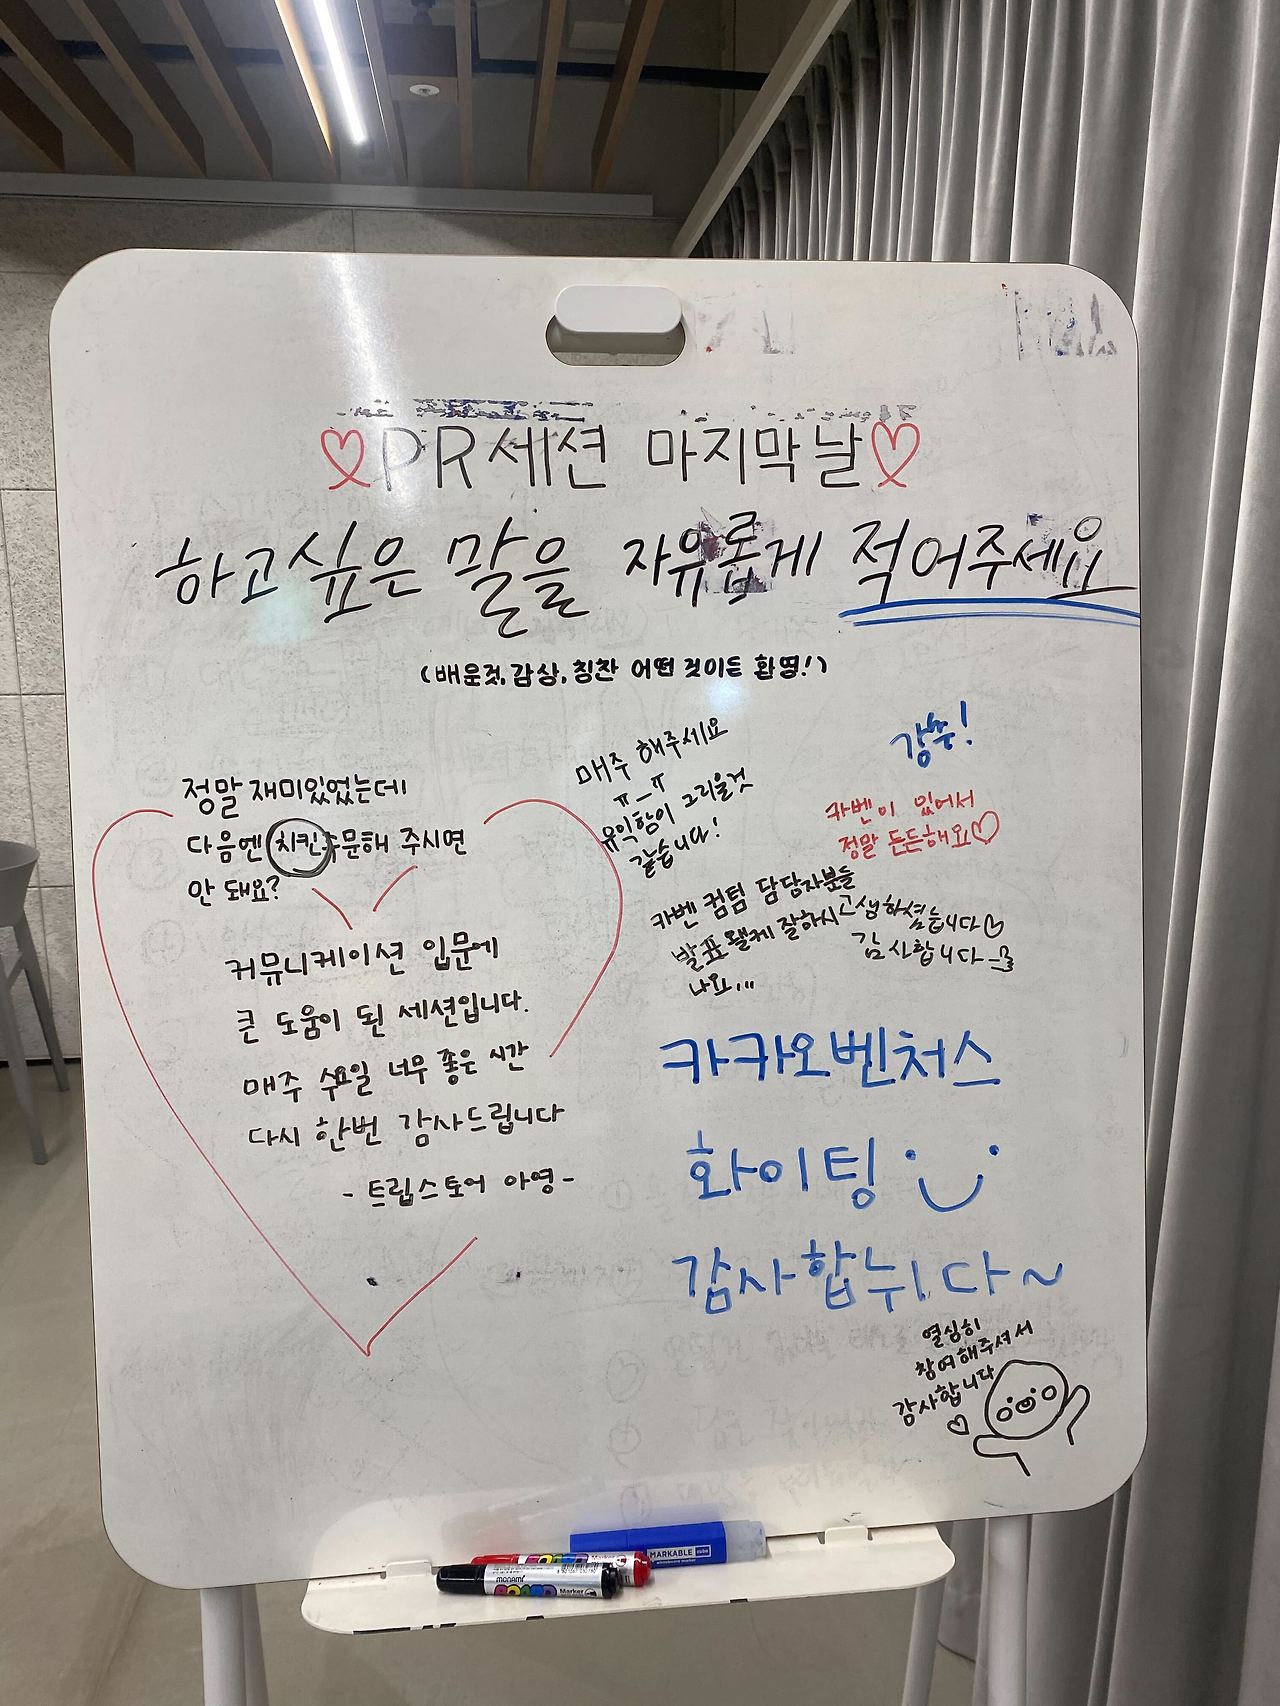 ♡PR세션 마지막날♡
하고싶은 말을 자유롭게 적어주세요
(배운것, 감상, 칭찬 어떤 것이든 환영!)
정말 재미있었는데
다음엔 치킨주문해 주시면
안 돼요?
커뮤니케이션 입문에
큰 도움이 된 세션입니다.
매주 수요일 너무 좋은 시간
다시 한번 감사드립니다
- 트립스토어 아영 -
매주 해주세요
ㅠ_ㅠ
유익함이 그리울것
같습니다!
강추!
카벤이 있어서
정말 든든해요♡
카벤 컴텀 담당자분들
고생하셨습니다♡
감사합니다
발표 왤케 잘하시
나요...
카카오벤처스
화이팅
감사합뉘다~
열심히
참여해주셔서
감사합니다
♡
MARKABLE
monami
BOARD
Marker